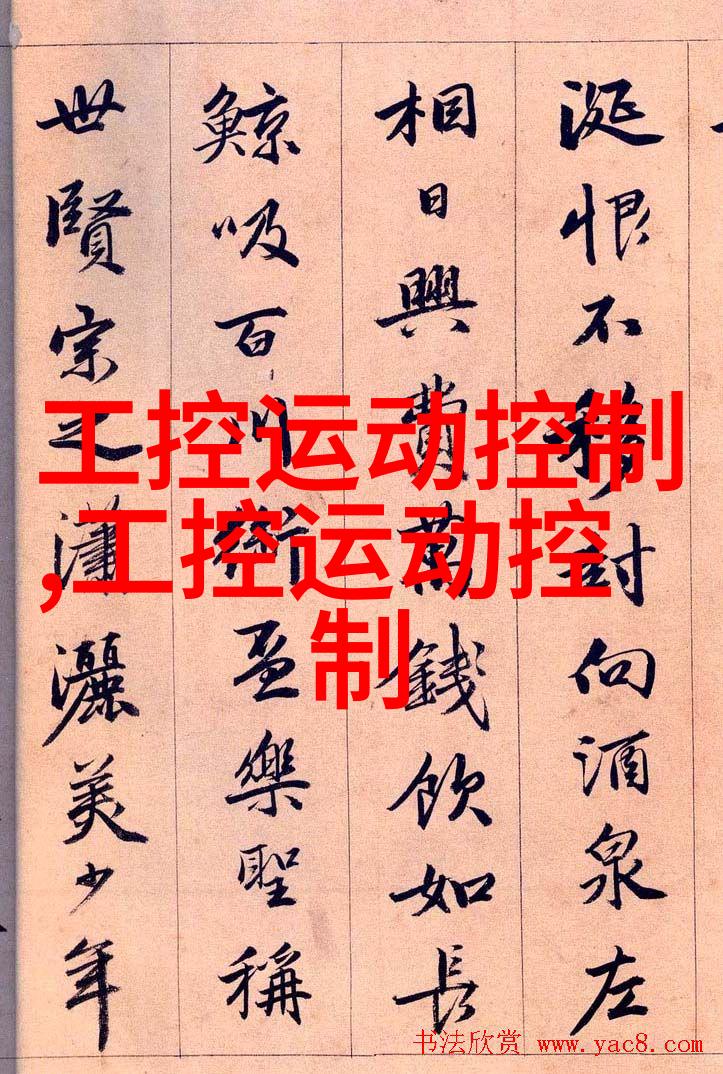 涎恨不移封向酒泉左
相日興費萬錢飲如長
鯨吸百川銜盃樂聖稱
世賢宗之瀟灑美少年
工控运动控制
,工控运动控
制
书法欣赏 www.yac8.com